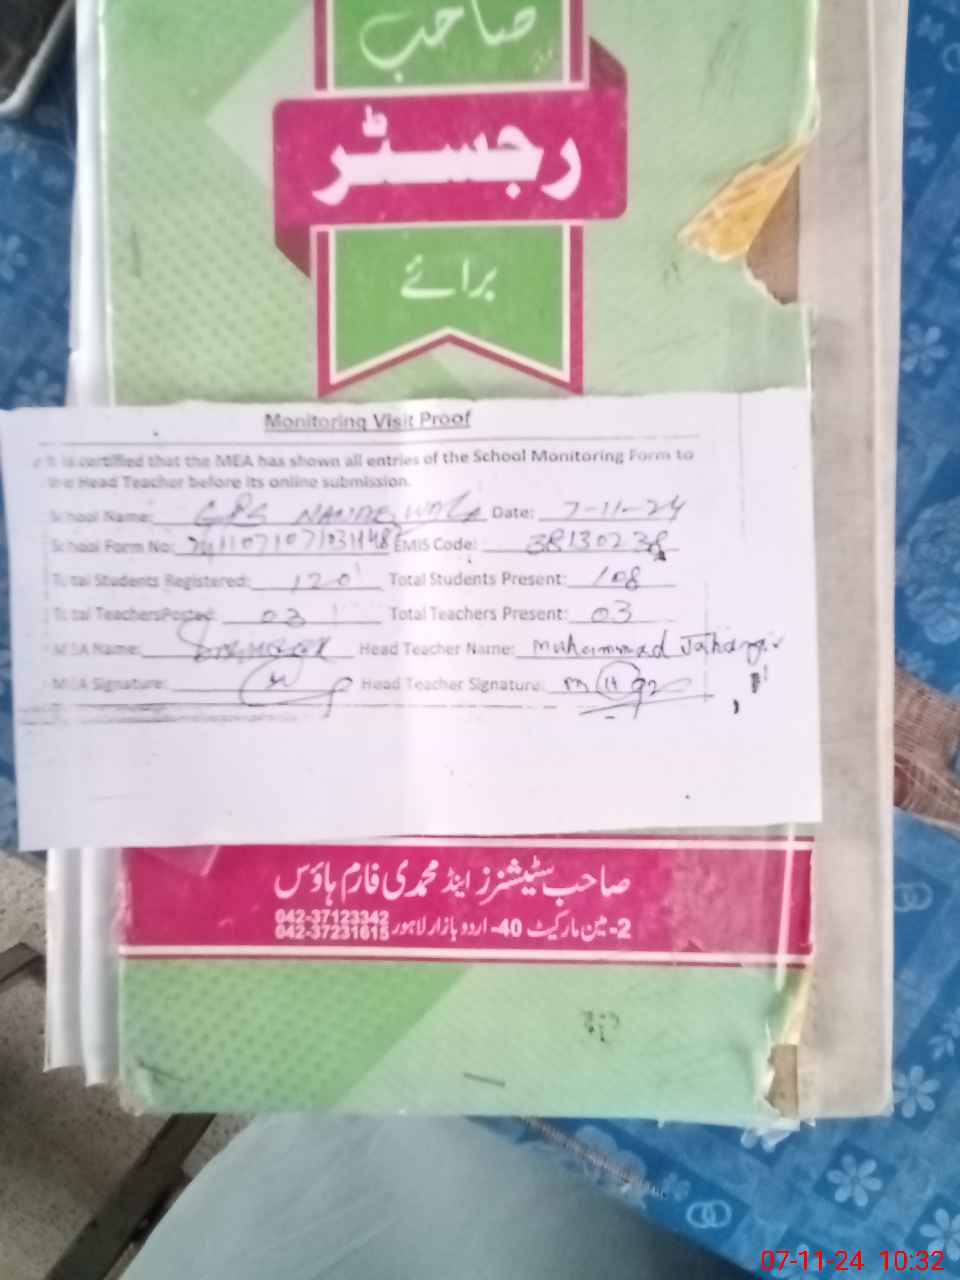 صاحب
رجسٹر
برائے
Monitoring Visit Proof
is certified that the MEA has shown all entries of the School Monitoring Form to
the Head Teacher before its online submission.
School Name: GPS Date: 7-11-24
School Form No: EMIS Code: 38130238
Total Students Registered: 120 Total Students Present: 108
Total TeachersPosted: 03 Total Teachers Present: 03
MEA Name: Head Teacher Name: Muhammad Jahangir
MEA Signature: Head Teacher Signature:
صاحب سٹیشنرز اینڈ محمدی فارم ہاؤس
2-مین مارکیٹ 40- اردو بازار لاہور 042-37123342
042-37231615
07-11-24 10:32